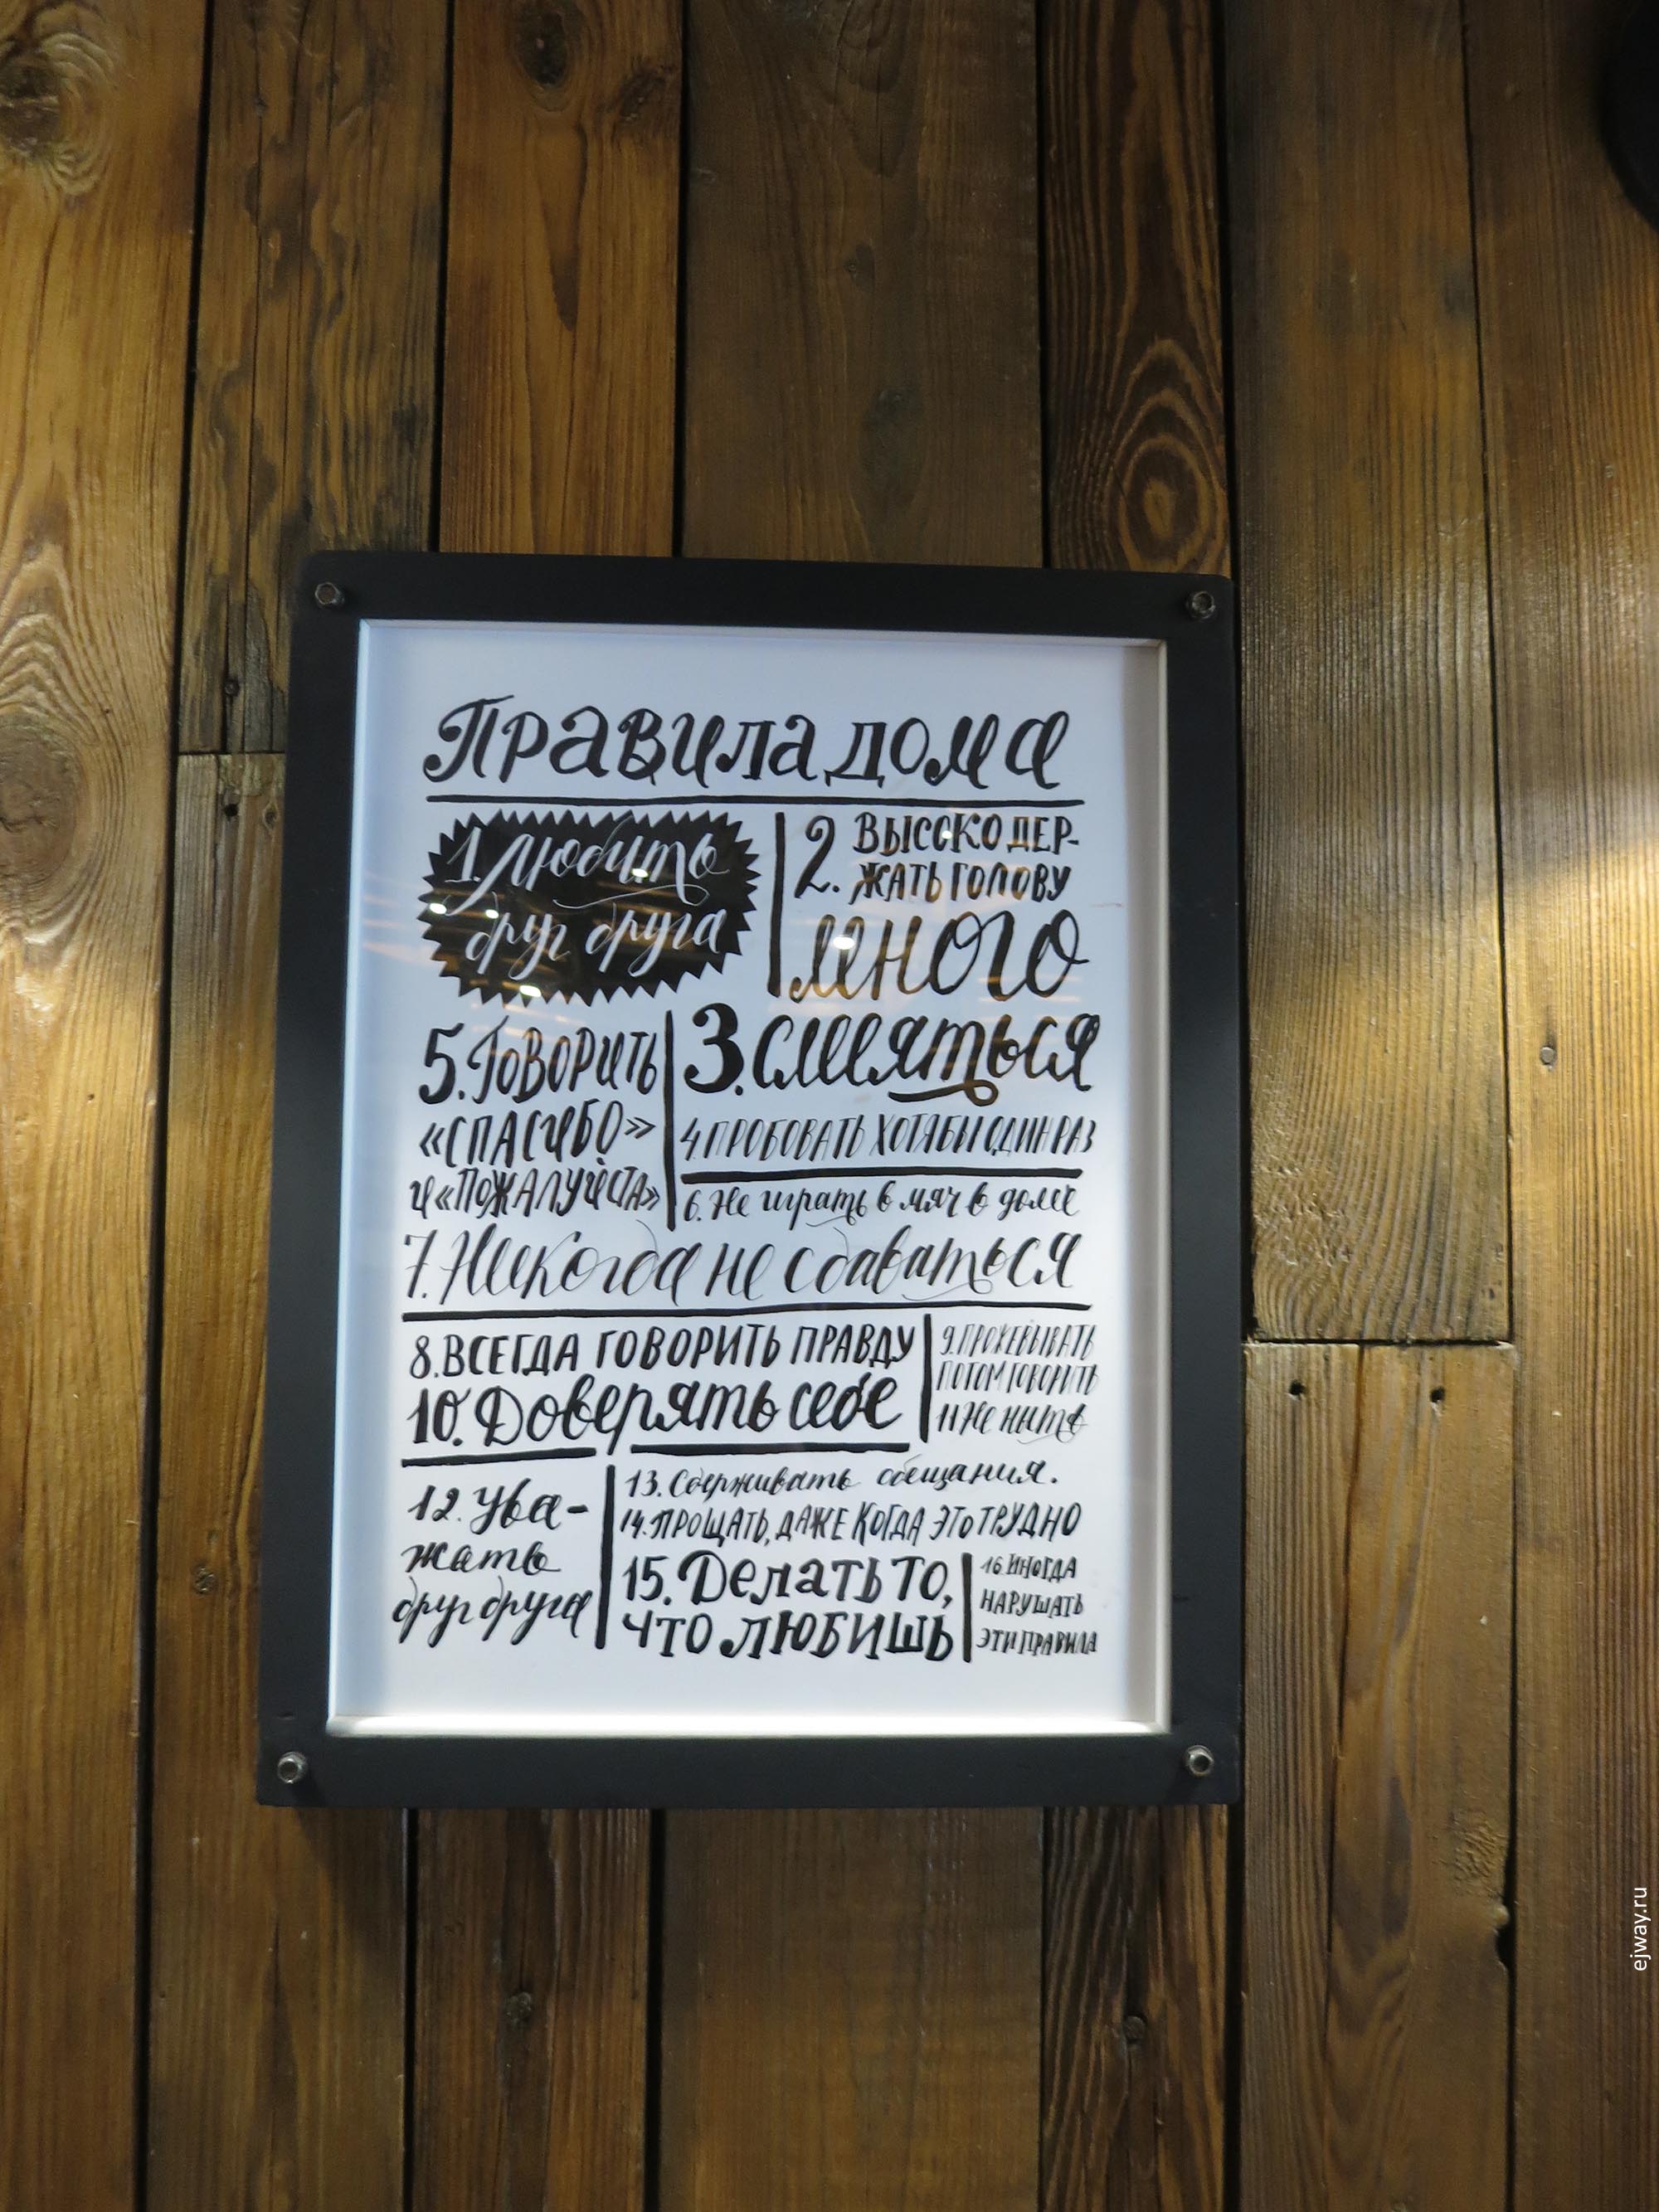 Правила дома
1. Любить
друг друга
2. ВЫСОКО ДЕР-
ЖАТЬ ГОЛОВУ
много
3. смеяться
4 ПРОБОВАТЬ ХОТЯ БЫ ОДИН РАЗ
5. ГОВОРИТЬ
«СПАСИБО»
и «ПОЖАЛУЙСТА»
6. Не играть в мяч в доме
7. Некогда не сдаваться
8. ВСЕГДА ГОВОРИТЬ ПРАВДУ
9. ПРОЖЕВЫВАТЬ
ПОТОМ ГОВОРИТЬ
10. Доверять себе
11 Не ныть
12. Ува-
жать
друг друга
13. Сдерживать обещания.
14. ПРОЩАТЬ, ДАЖЕ КОГДА ЭТО ТРУДНО
15. Делать то,
что ЛЮБИШЬ
16 ИНОГДА
НАРУШАТЬ
ЭТИ ПРАВИЛА
ejway.ru